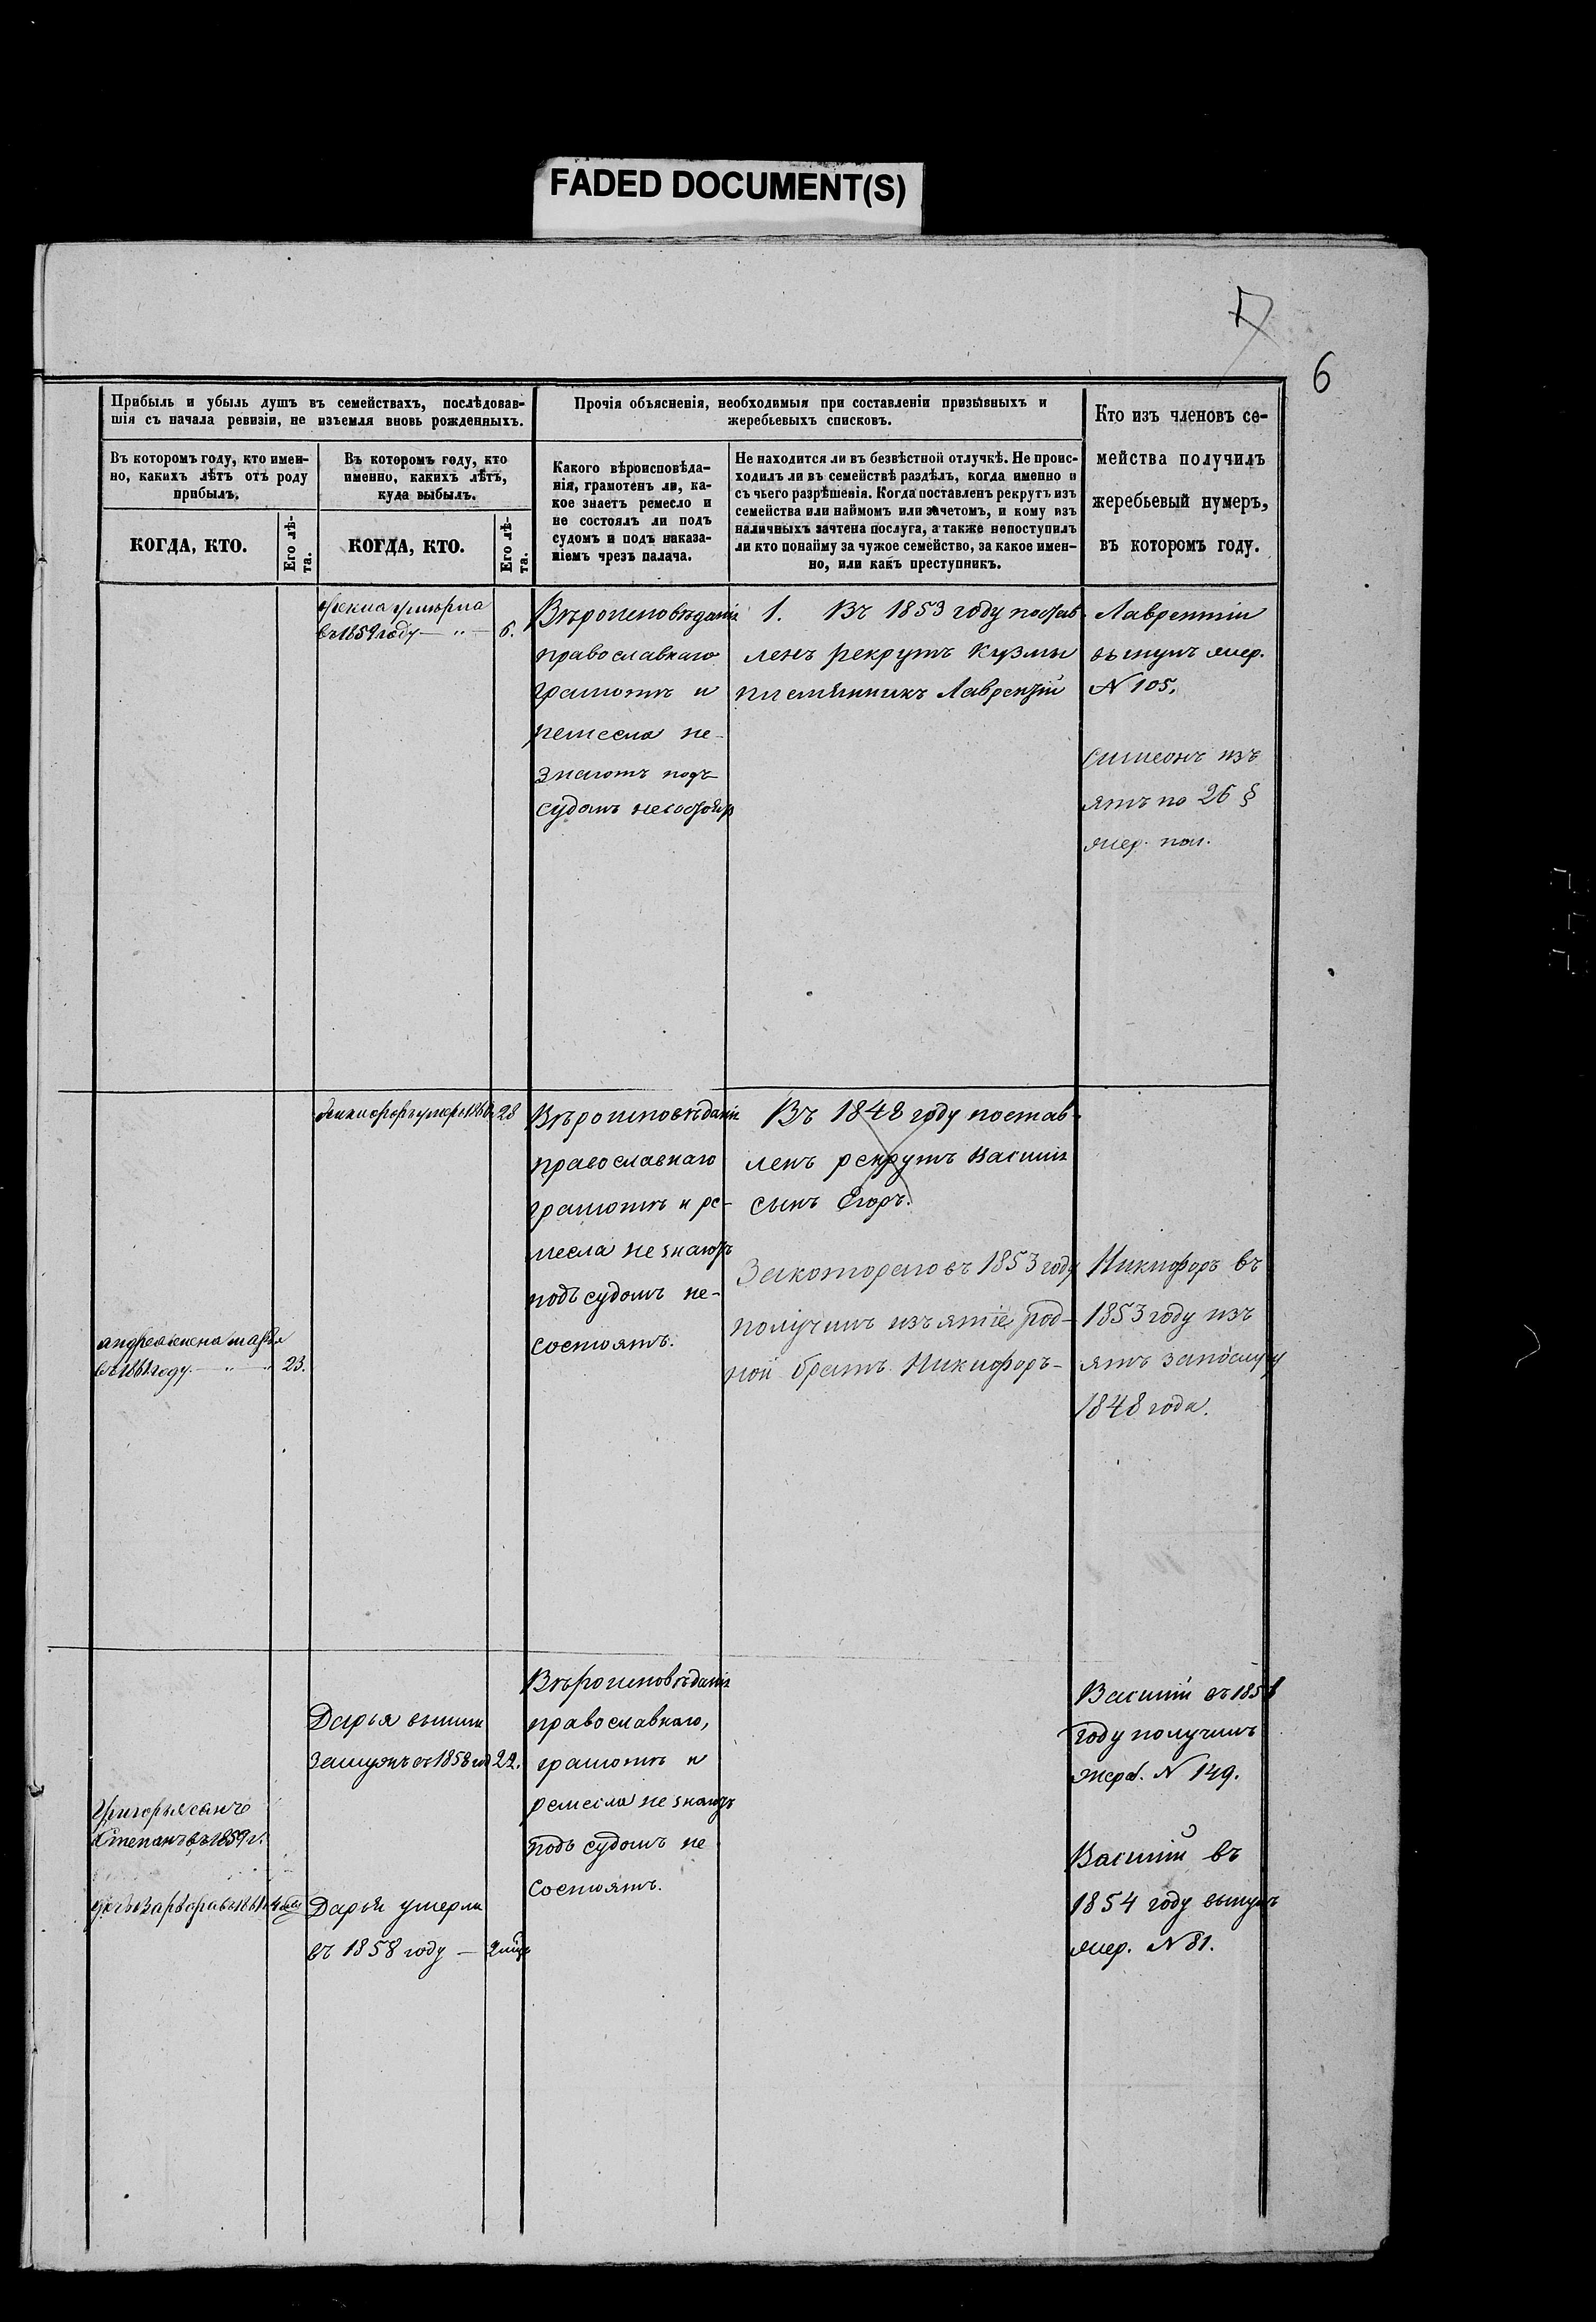 FADED DOCUMENT(S)
7
6
Прибыль и убыль душъ въ семействахъ, послѣдовав-
шія съ начала ревизіи, не изъемля вновь рожденныхъ.
Прочія объясненія, необходимыя при составленіи призывныхъ и
жеребьевыхъ списковъ.
Кто изъ членовъ се-
мейства получилъ
жеребьевый нумеръ,
въ которомъ году.
Въ которомъ году, кто имен-
но, какихъ лѣтъ отъ роду
прибылъ.
Въ которомъ году, кто
именно, какихъ лѣтъ,
куда выбылъ.
Какого вѣроисповѣда-
нія, грамотенъ ли, ка-
кое знаетъ ремесло и
не состоялъ ли подъ
судомъ и подъ наказа-
ніемъ чрезъ палача.
Не находится ли въ безвѣстной отлучкѣ. Не проис-
ходилъ ли въ семействѣ раздѣлъ, когда именно и
съ чьего разрѣшенія. Когда поставленъ рекрутъ изъ
семейства или наймомъ или зачетомъ, и кому изъ
наличныхъ зачтена послуга, а также непоступилъ
ли кто понайму за чужое семейство, за какое имен-
но, или какъ преступникъ.
КОГДА, КТО.
Его лѣ-
та.
КОГДА, КТО.
Его лѣ-
та.
въ 1859 году — " — 6.
Вѣроисповѣданія
православнаго
грамотѣ и
ремесла не-
знаютъ подъ
судомъ несостоятъ
1. Въ 1853 году постав-
ленъ рекрутъ Кузмы
племянникъ Лаврентій
Лаврентій
вынулъ жер.
N 105.
Симеонъ изъ
ятъ по 26 §
жер. пол.
Никифоръ умеръ 1860 28
Вѣроисповѣданія
православнаго
грамотѣ и ре-
месла не знаютъ
подъ судомъ не-
состоятъ.
Въ 1848 году постав-
ленъ рекрутъ Василія
сынъ Егоръ.
За котораго въ 1853 году
получилъ изъятіе род-
ной братъ Никифоръ-
Никифоръ въ
1853 году изъ
ятъ запослугу
1848 года.
андрея жена марья
въ 1861 году — " — 23.
Дарья вышла
замужъ въ 1858 год 22.
Григорья сынъ
Степанъ въ 1859 г.
Дарья умерла
въ 1858 году —
Вѣроисповѣданія
православнаго,
грамотѣ и
ремесла не знаютъ
подъ судомъ не
состоятъ.
Василій въ
году получилъ
жереб. N 149.
Василій въ
1854 году вынулъ
жер. N 81.